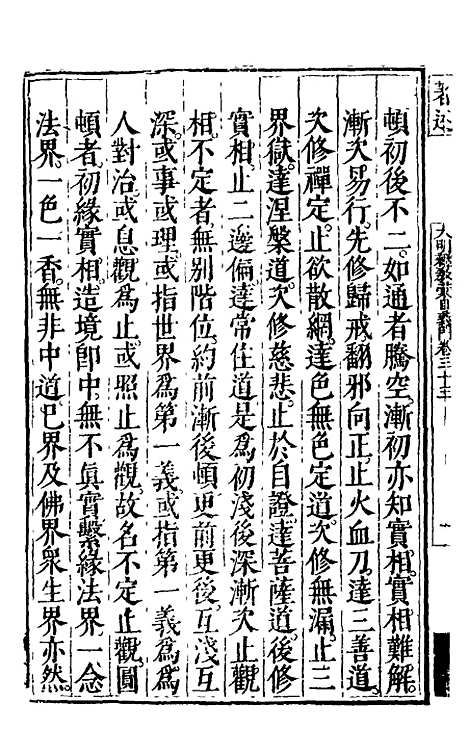 頓初後不二如通者騰空漸初亦知實相實相難解
漸次易行先修歸戒翻邪向正止火血刀達三善道
次修禪定止欲散網達色無色定道次修無漏止三
界獄達涅槃道次修慈悲止於自證達菩薩道後修
實相止二邊偏達常住道是為初淺後深漸次止觀
相不定者無別階位約前漸後頓更前更後互淺互
深或事或理或指世界爲第一義或指第一義爲爲
人對治或息觀爲止或照止爲觀故名不定止觀圓
頓者初緣實相造境卽中無不眞實繫緣法界一念
法界一色一香無非中道巳界及佛界衆生界亦然
卷三十三